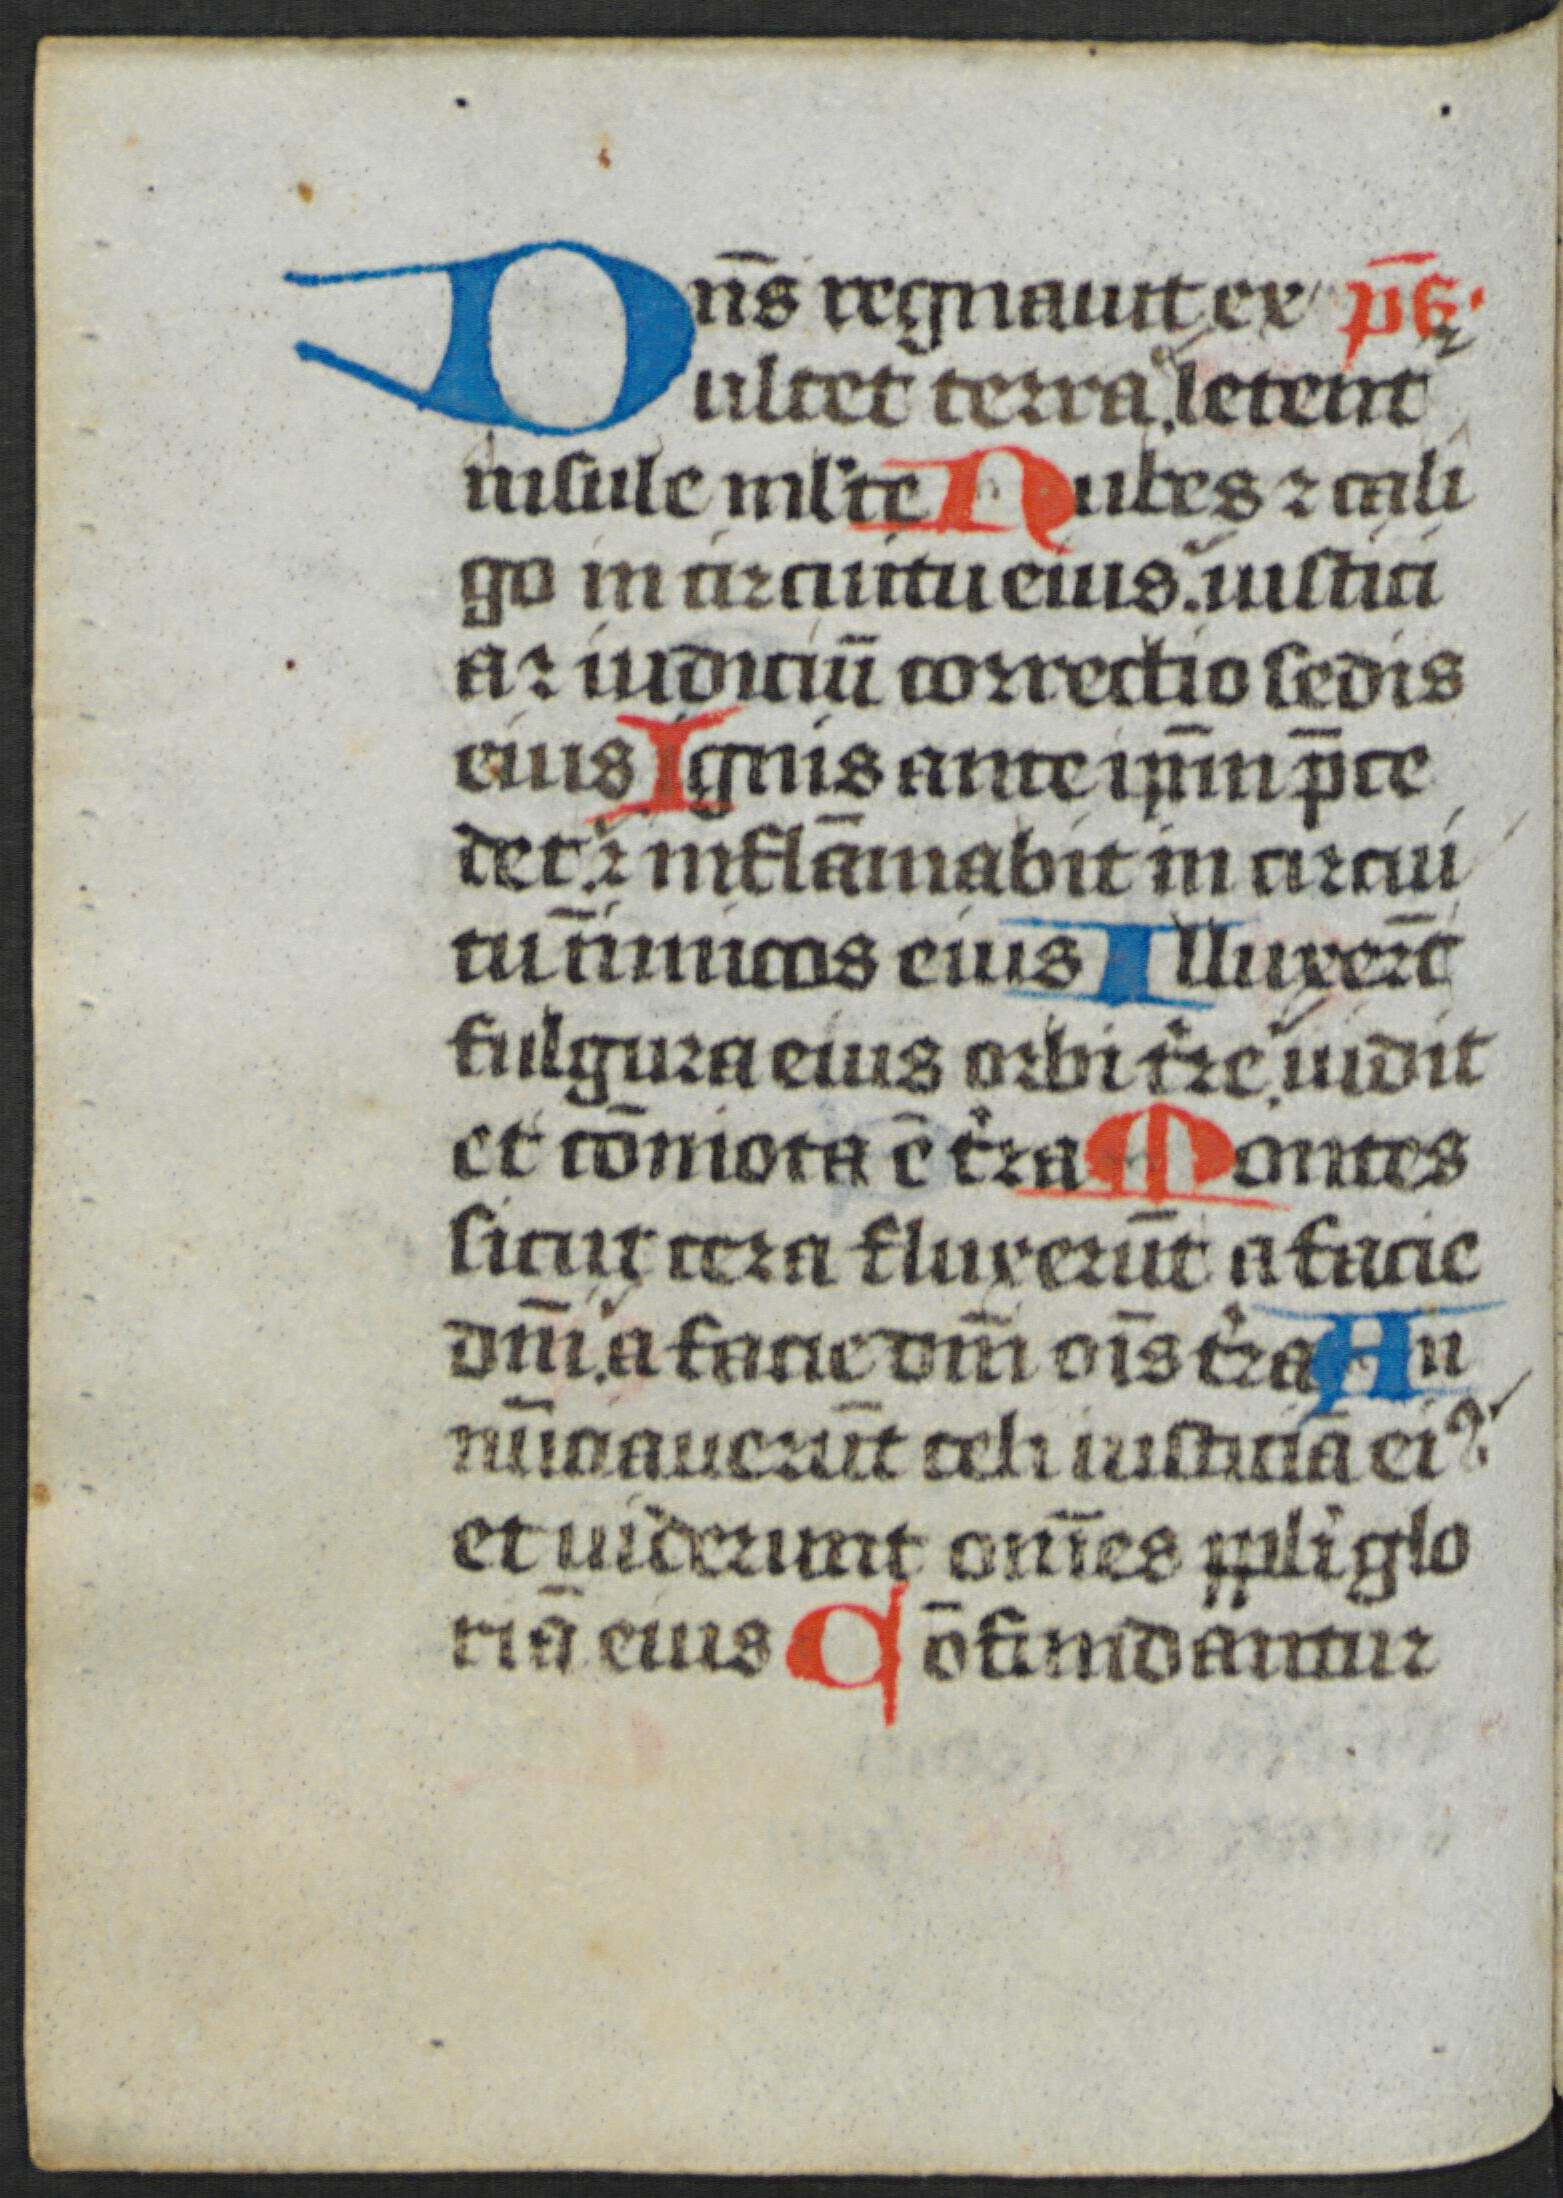 Dn̄s regnauit ex p̄s.
ultet terra. letent᷑
insule ml̓te Nubes ⁊ cali
go in circuitu eius. iustici
a ⁊ iudiciū correctio sedis
eius Ignis ante ip̄m p̄ce
det. ⁊ inflāmabit in circui
tu īnimicos eius Illuxer̄t
fulgura eius orbi t̓re. uidit
et cōmota ē t̓ra Montes
sicut cera fluxerūt a facie
dn̄i. a facie dn̄i oīs t̓ra An
nūciauerūt celi iusticiā eiꝰ.
et uiderunt om̄es ppl̓i glo
riā eius Cōfundantur